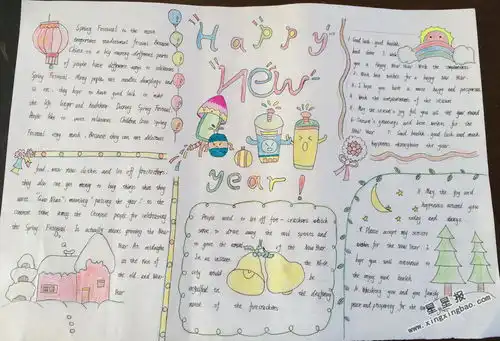 Spring Festival is the most
important traditional festival
China is a big
of people have different ways to celebrate
Spring Festival. Many people eat
so on. they hope to have good luck to make
the life longer and healthier. During Spring Festival
People like to
Spring Festival very much. Because they can eat delicious
food, wear new clothes and
they also can get money to buy things that they
want. "Guo Nian", meaning "passing the year", is the
common term among the Chinese people for celebrating
the Spring Festival. It actually means greeting the New
Year. At midnight
at the turn of
the old and New
Year
Happy
New
year!
People used to let off fire-crackers which
serve to drive away the evil spirits and
to greet the of the New Year.
In an instant the whole
city would be
engulfed in the deafening
noise of the firecrackers
Good luck, good health,
good cheer. I wish
you a happy New Year. With the compliments
With best wishes for a happy New Year
I hope you have a most happy and prosperous
With the compliments of the season
May the season's joy fill you all the year round
Season's greetings and best wishes for the
New Year. Good health, good luck and much
happiness throughout the year
May the joy and
happiness around you
today and always
Please accept my season
wishes for the New Year. I
hope you will continue to
the enjoy good health
Wishing you and your family
peace and prosperity for the
星星报
www.xingxingbao.com